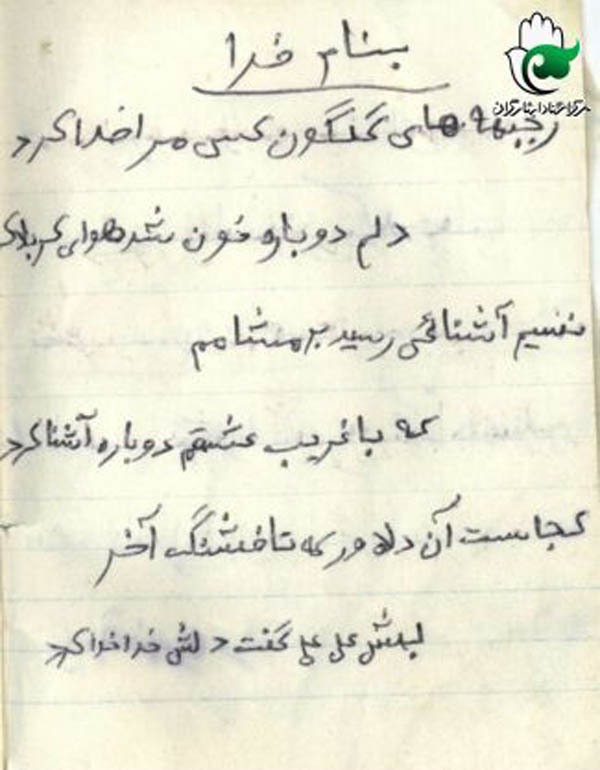 بنام خدا
مرکز اسناد ایثارگران
زجبهه های گلگون کسی مرا صدا کرد
دلم دوباره خون شد هوای کربلا کرد
نسیم آشنائی رسید بر مشامم
که با غریب عشقم دوباره آشنا کرد
کجاست آن دلاور که تا فشنگ آخر
لبش علی علی گفت دلش خدا خدا کرد